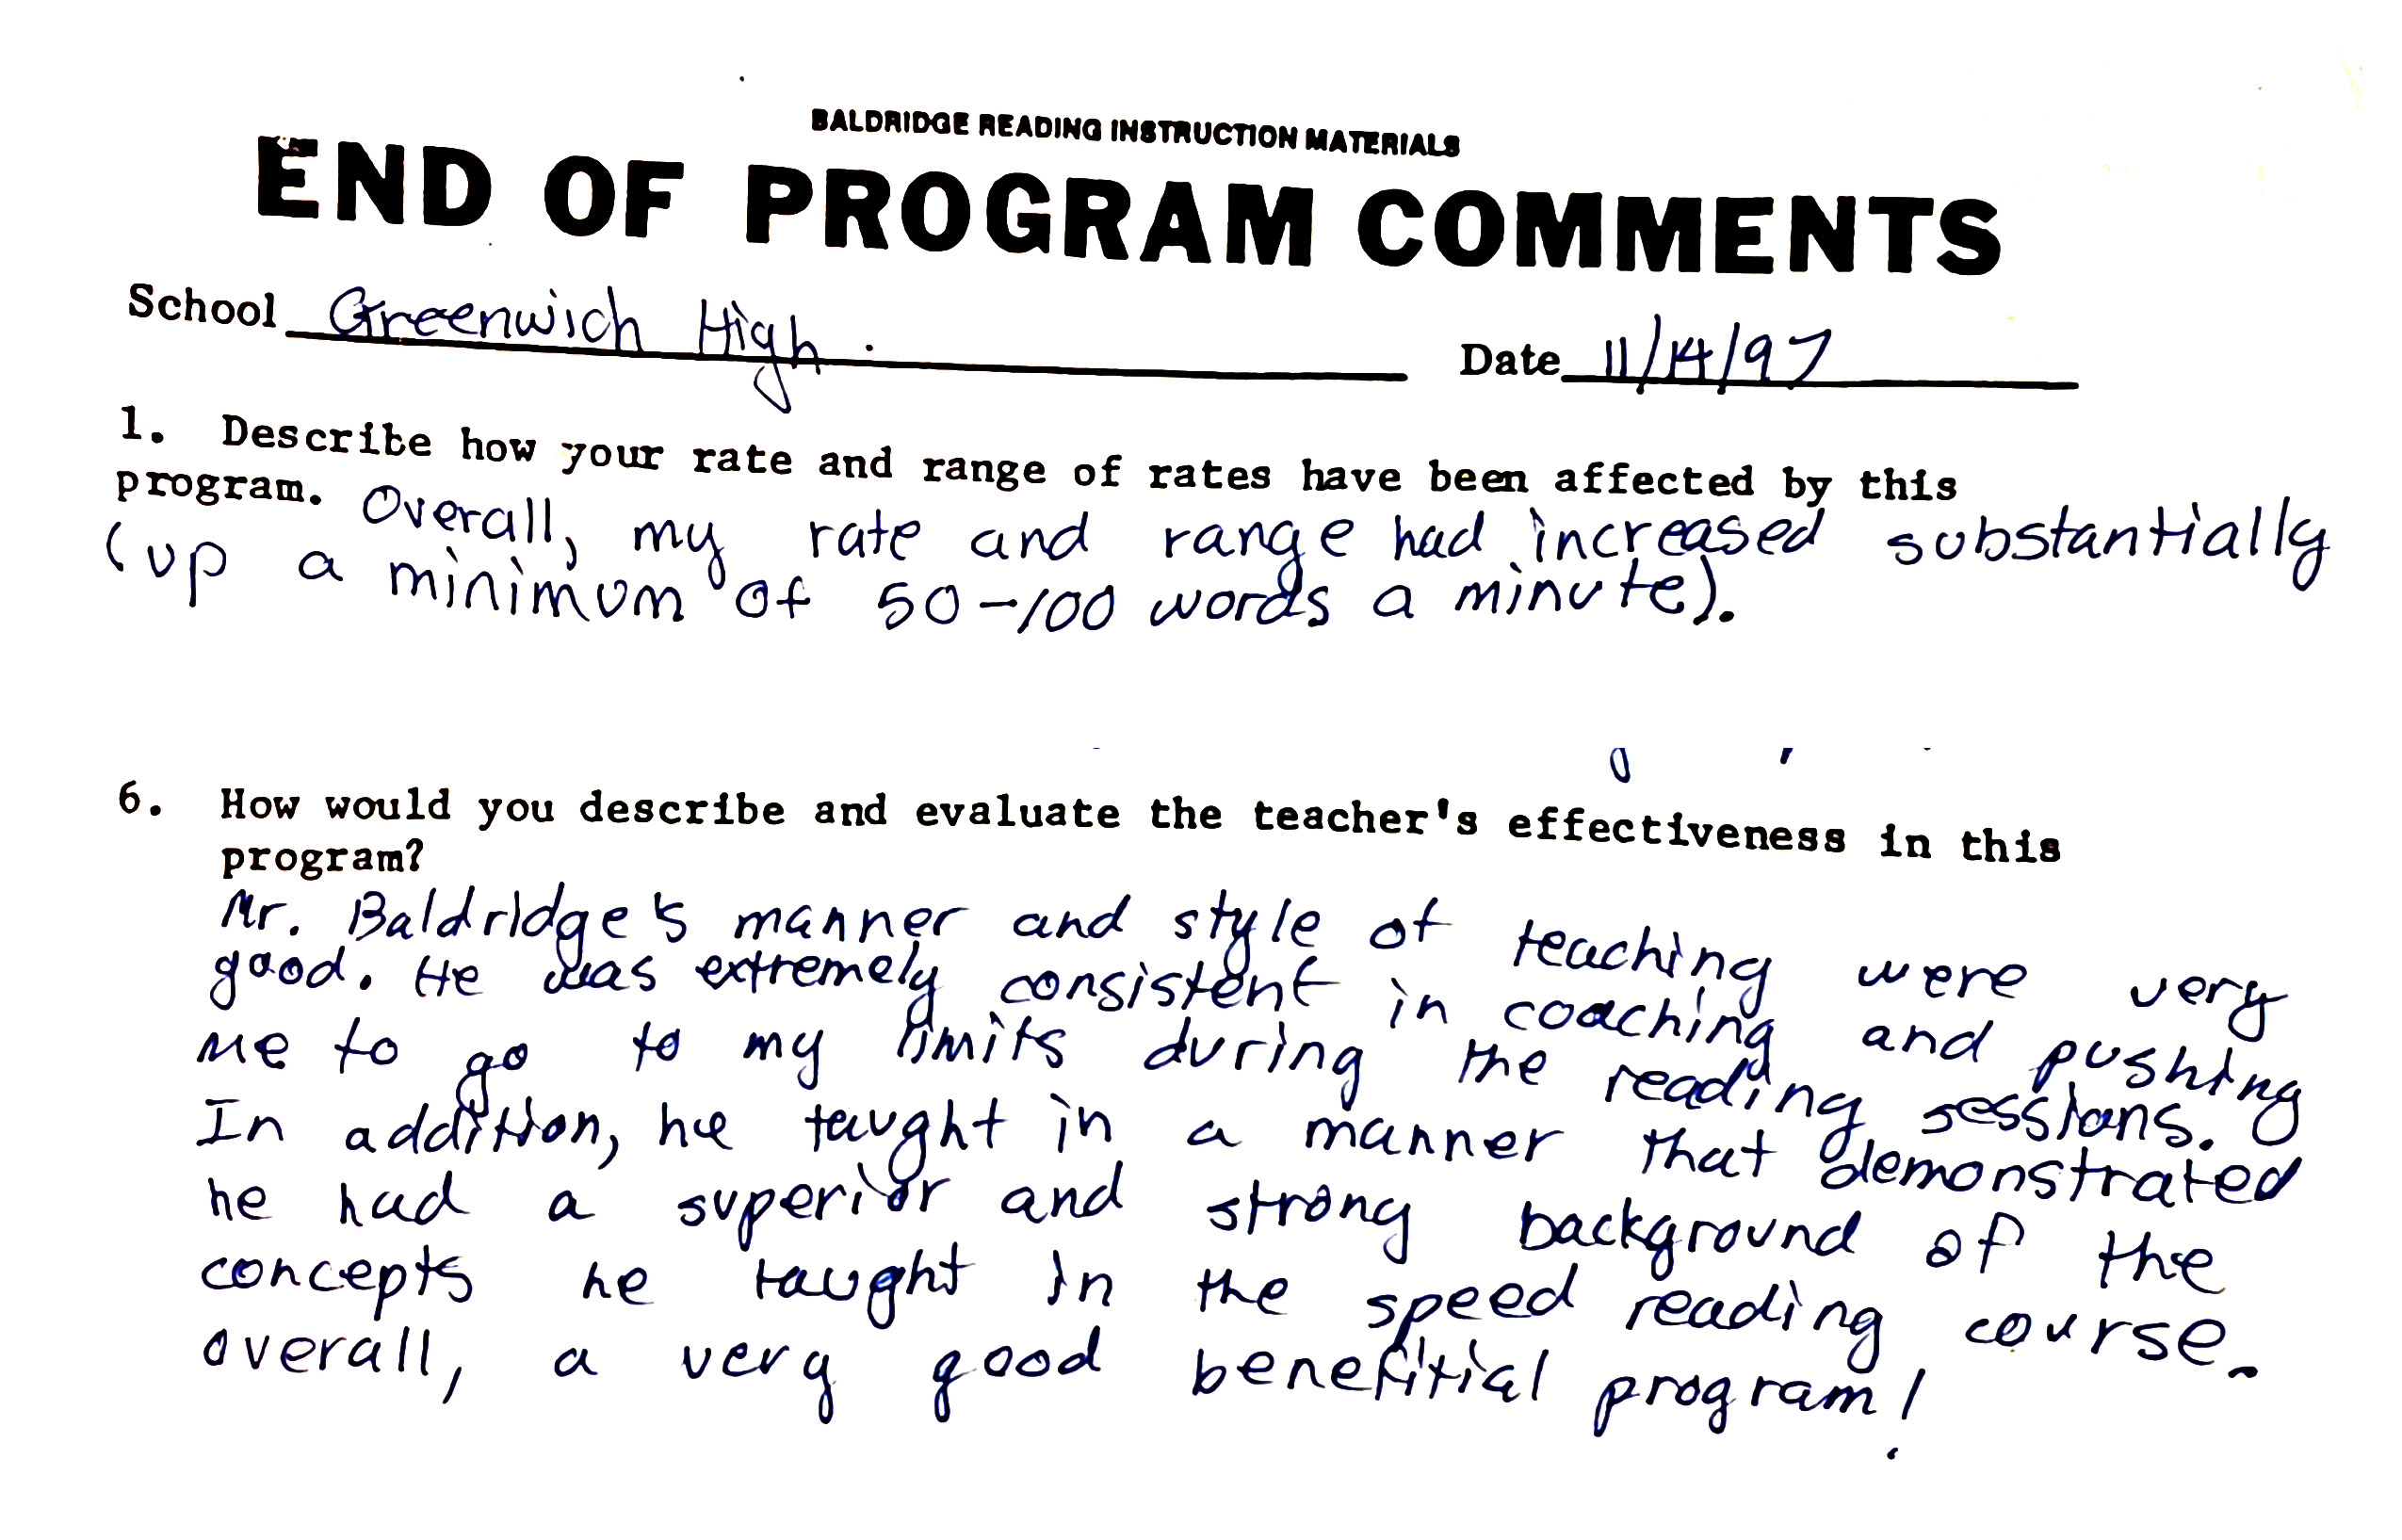 BALDRIDGE READING INSTRUCTION MATERIALS
END OF PROGRAM COMMENTS
School Greenwich High.
Date 11/14/97
1. Describe how your rate and range of rates have been affected by this
program. Overall, my rate and range had increased substantially
(up a minimum of 50-100 words a minute).
6. How would you describe and evaluate the teacher's effectiveness in this
program?
Mr. Baldridge's manner and style of teaching were very
good. He was extremely consistent in coaching and pushing
me to go to my limits during the reading sessions.
In addition, he taught in a manner that demonstrated
he had a superior and strong background of the
concepts he taught in the speed reading course.
overall, a very good benefitial program!